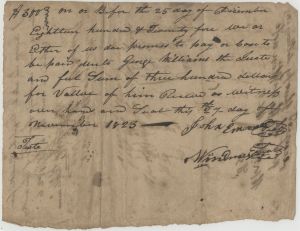 $300 on or Before the 25 day of December
Eighteen hundred & Twenty four we or
Either of us do promis to pay or Caus to
be paid unto George Williams the Juste
and full Sum of three hundred dollars
for Vallue of him Recivd as witness
our hand and Seal this day of
1823
Teste John